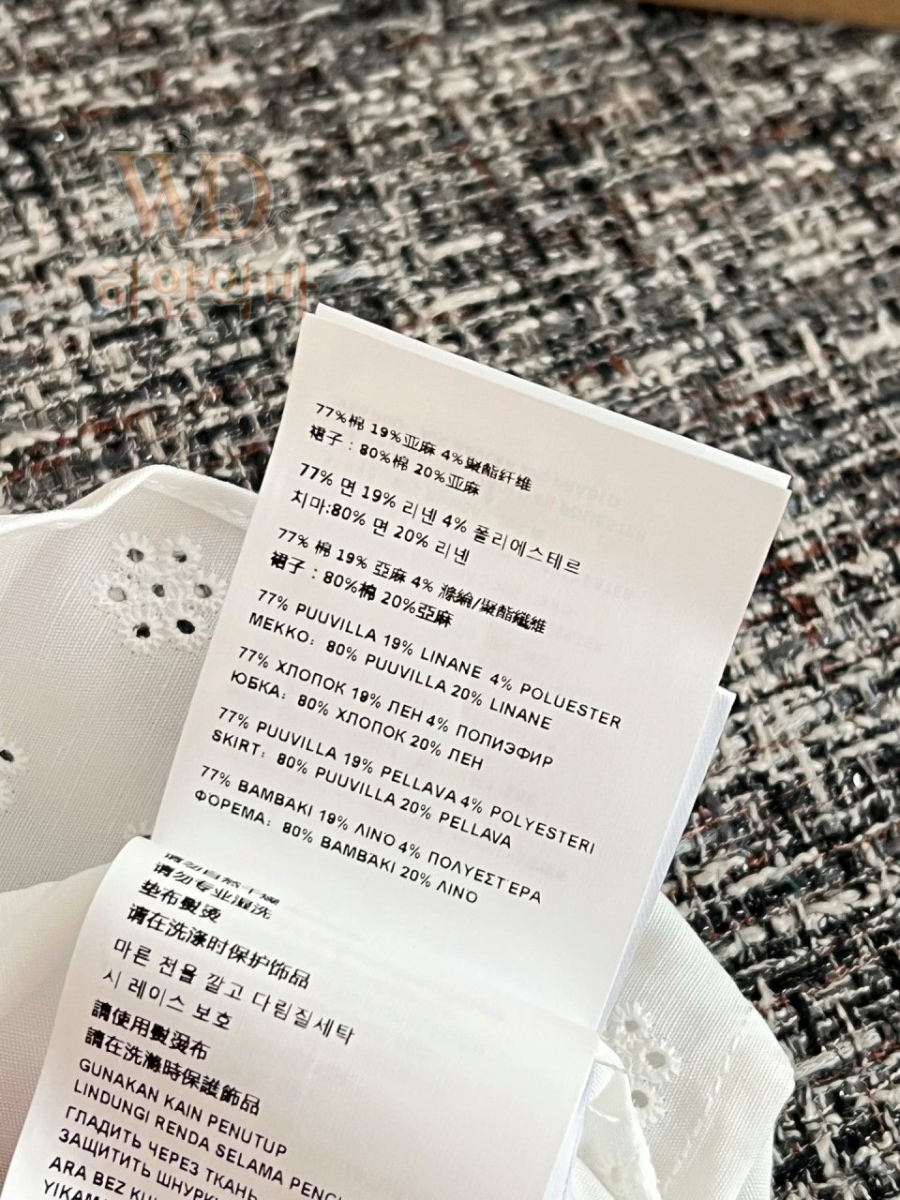 WD
하얀악마
77%棉 19%亚麻 4%聚酯纤维
裙子：80%棉 20%亚麻
77% 면 19% 리넨 4% 폴리에스테르
치마:80% 면 20% 리넨
77% 棉 19% 亞麻 4% 滌綸/聚酯纖維
裙子：80%棉 20%亞麻
77% PUUVILLA 19% LINANE 4% POLUESTER
MEKKO: 80% PUUVILLA 20% LINANE
77% ХЛОПОК 19% ЛЕН 4% ПОЛИЭФИР
ЮБКА: 80% ХЛОПОК 20% ЛЕН
77% PUUVILLA 19% PELLAVA 4% POLYESTERI
SKIRT: 80% PUUVILLA 20% PELLAVA
77% BAMBAKI 19% ΛΙΝΟ 4% ΠΟΛΥΕΣΤΕΡΑ
ΦΌΡΕΜΑ: 80% BAMBAKI 20% ΛΙΝΟ
请勿专业湿洗
垫布熨烫
请在洗涤时保护饰品
마른 천을 깔고 다림질세탁
시 레이스 보호
請使用熨燙布
請在洗滌時保護飾品
GUNAKAN KAIN PENUTUP
LINDUNGI RENDA SELAMA
ГЛАДИТЬ ЧЕРЕЗ ТКАНЬ
ЗАЩИТИТЬ
ARA BEZ